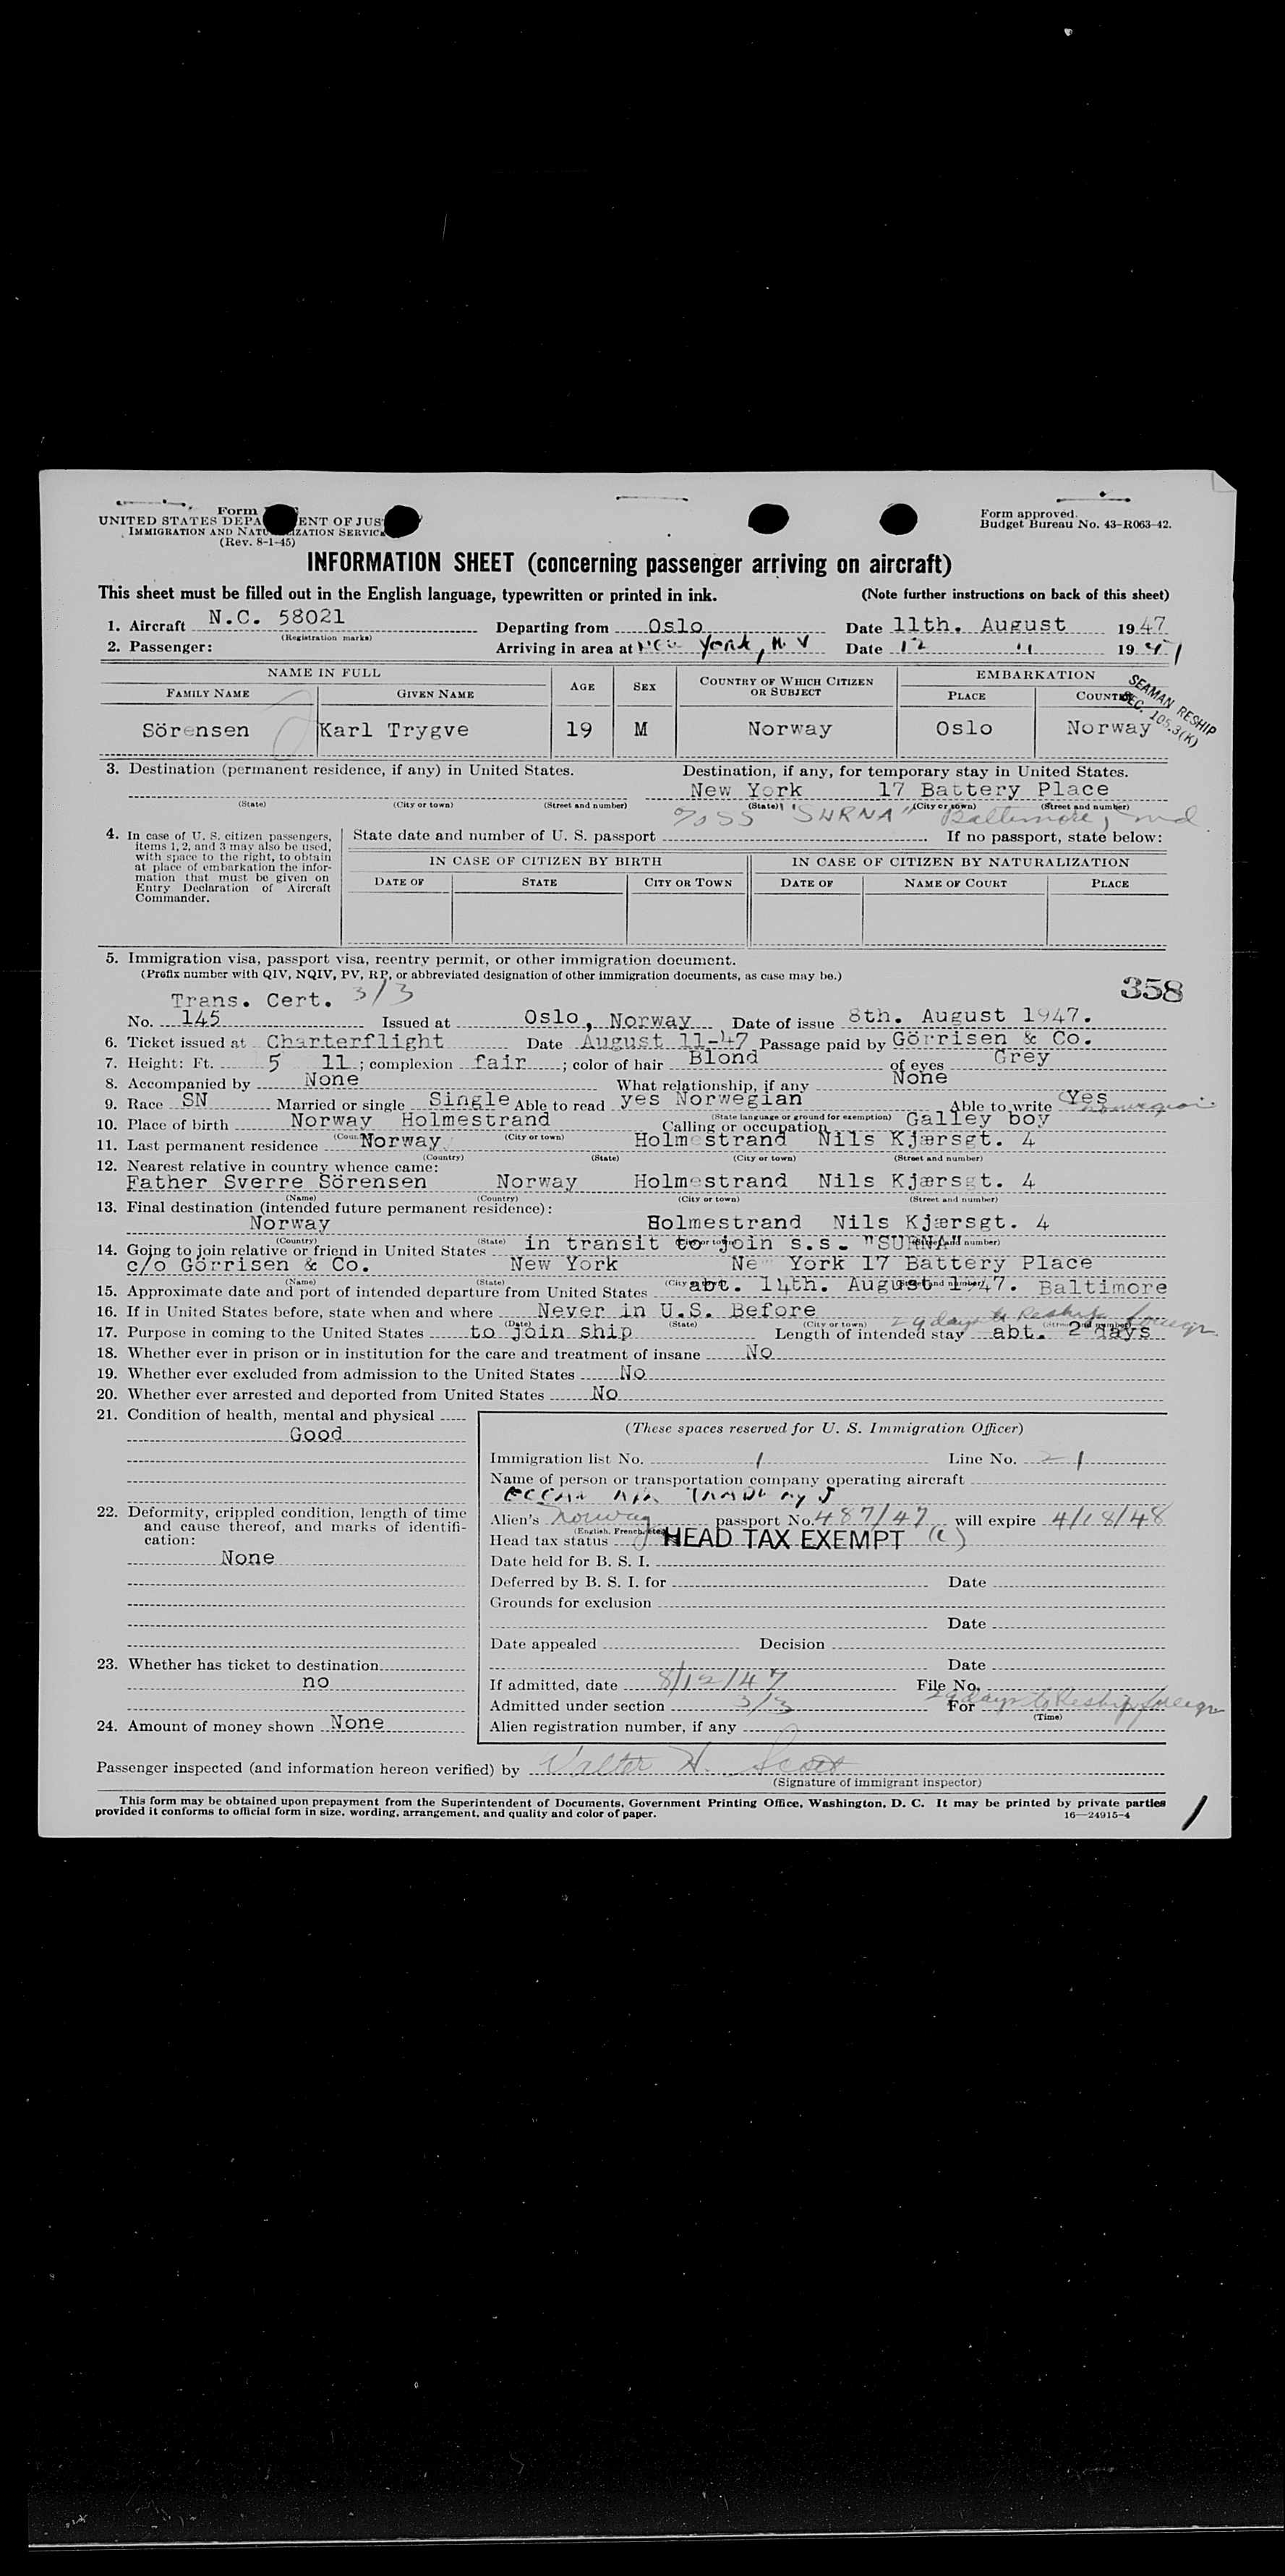 Form
UNITED STATES DEPA ENT OF JUS
IMMIGRATION AND NATU IZATION SERVICE
(Rev. 8-1-45)
Form approved.
Budget Bureau No. 43-R063-42.
INFORMATION SHEET (concerning passenger arriving on aircraft)
This sheet must be filled out in the English language, typewritten or printed in ink. (Note further instructions on back of this sheet)
1. Aircraft N.C. 58021 Departing from Oslo Date 11th. August 1947
(Registration marks)
2. Passenger: Arriving in area at New York, N.Y Date 12 " 1947
NAME IN FULL AGE SEX COUNTRY OF WHICH CITIZEN OR SUBJECT EMBARKATION
FAMILY NAME GIVEN NAME PLACE COUNTRY
SEAMAN RESHIP
SEC. 105.3(K)
Sörensen Karl Trygve 19 M Norway Oslo Norway
3. Destination (permanent residence, if any) in United States. Destination, if any, for temporary stay in United States.
New York 17 Battery Place
(State) (City or town) (Street and number) (State) (City or town) (Street and number)
% SS "SURNA" Baltimore, Md.
4. In case of U. S. citizen passengers, items 1, 2, and 3 may also be used, with space to the right, to obtain at place of embarkation the information that must be given on Entry Declaration of Aircraft Commander.
State date and number of U. S. passport If no passport, state below:
IN CASE OF CITIZEN BY BIRTH IN CASE OF CITIZEN BY NATURALIZATION
DATE OF STATE CITY OR TOWN DATE OF NAME OF COURT PLACE
5. Immigration visa, passport visa, reentry permit, or other immigration document.
(Prefix number with QIV, NQIV, PV, RP, or abbreviated designation of other immigration documents, as case may be.)
358
Trans. Cert. 3/3
No. 145 Issued at Oslo, Norway Date of issue 8th. August 1947.
6. Ticket issued at Charterflight Date August 11-47 Passage paid by Görrisen & Co.
7. Height: Ft. 5 11; complexion fair; color of hair Blond of eyes Grey
8. Accompanied by None What relationship, if any None
9. Race SN Married or single Single Able to read yes Norwegian Able to write Yes Norwegian
(State language or ground for exemption)
10. Place of birth Norway Holmestrand Calling or occupation Galley boy
(Country) (City or town)
11. Last permanent residence Norway Holmestrand Nils Kjærsgt. 4
(Country) (State) (City or town) (Street and number)
12. Nearest relative in country whence came:
Father Sverre Sörensen Norway Holmestrand Nils Kjærsgt. 4
(Name) (Country) (City or town) (Street and number)
13. Final destination (intended future permanent residence):
Norway Holmestrand Nils Kjærsgt. 4
(Country) (State) (City or town) (Street and number)
14. Going to join relative or friend in United States in transit to join s.s. "SURNA"
c/o Görrisen & Co. New York Ne York 17 Battery Place
(Name) (State) (City or town) (Street and number)
15. Approximate date and port of intended departure from United States abt. 14th. August 1947. Baltimore
16. If in United States before, state when and where Never in U.S. Before
(Date) (State) (City or town) (Street and number)
29 days to Reship foreign
17. Purpose in coming to the United States to join ship Length of intended stay abt. 2 days
18. Whether ever in prison or in institution for the care and treatment of insane No
19. Whether ever excluded from admission to the United States No
20. Whether ever arrested and deported from United States No
21. Condition of health, mental and physical
Good
22. Deformity, crippled condition, length of time and cause thereof, and marks of identification:
None
23. Whether has ticket to destination
no
24. Amount of money shown None
(These spaces reserved for U. S. Immigration Officer)
Immigration list No. 1 Line No. 21
Name of person or transportation company operating aircraft
Alien's Norway passport No. 487/47 will expire 4/18/48
(English, French, etc.)
Head tax status HEAD TAX EXEMPT (c)
Date held for B. S. I.
Deferred by B. S. I. for Date
Grounds for exclusion
Date
Date appealed Decision
Date
If admitted, date 8/12/47 File No.
Admitted under section 3/3 For 29 days to Reship foreign
(Time)
Alien registration number, if any
Passenger inspected (and information hereon verified) by Walter H. Scott
(Signature of immigrant inspector)
This form may be obtained upon prepayment from the Superintendent of Documents, Government Printing Office, Washington, D. C. It may be printed by private parties
provided it conforms to official form in size, wording, arrangement, and quality and color of paper. 16—24915-4